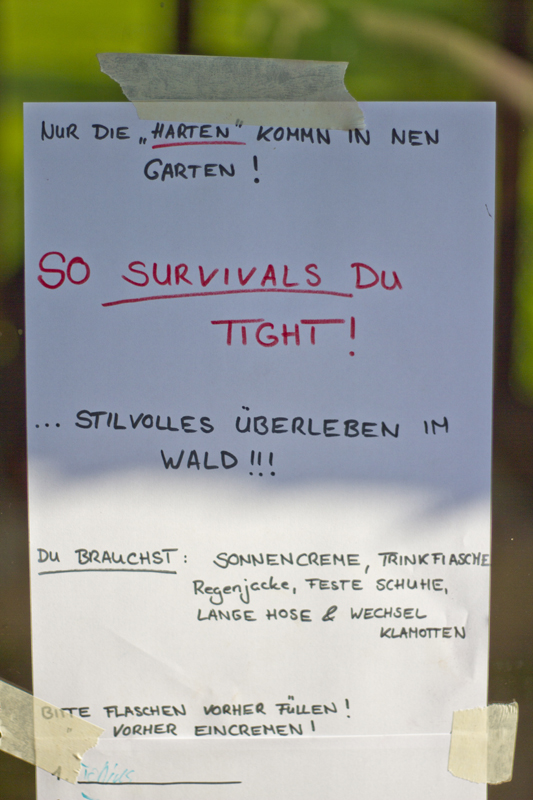 NUR DIE „HARTEN" KOMMN IN NEN
GARTEN !
SO SURVIVALS DU
TIGHT !
... STILVOLLES ÜBERLEBEN IM
WALD !!!
DU BRAUCHST : SONNENCREME, TRINKFLASCHE
Regenjacke, FESTE SCHUHE,
LANGE HOSE & WECHSEL
KLAMOTTEN
BITTE FLASCHEN VORHER FÜLLEN !
" VORHER EINCREMEN !
1.